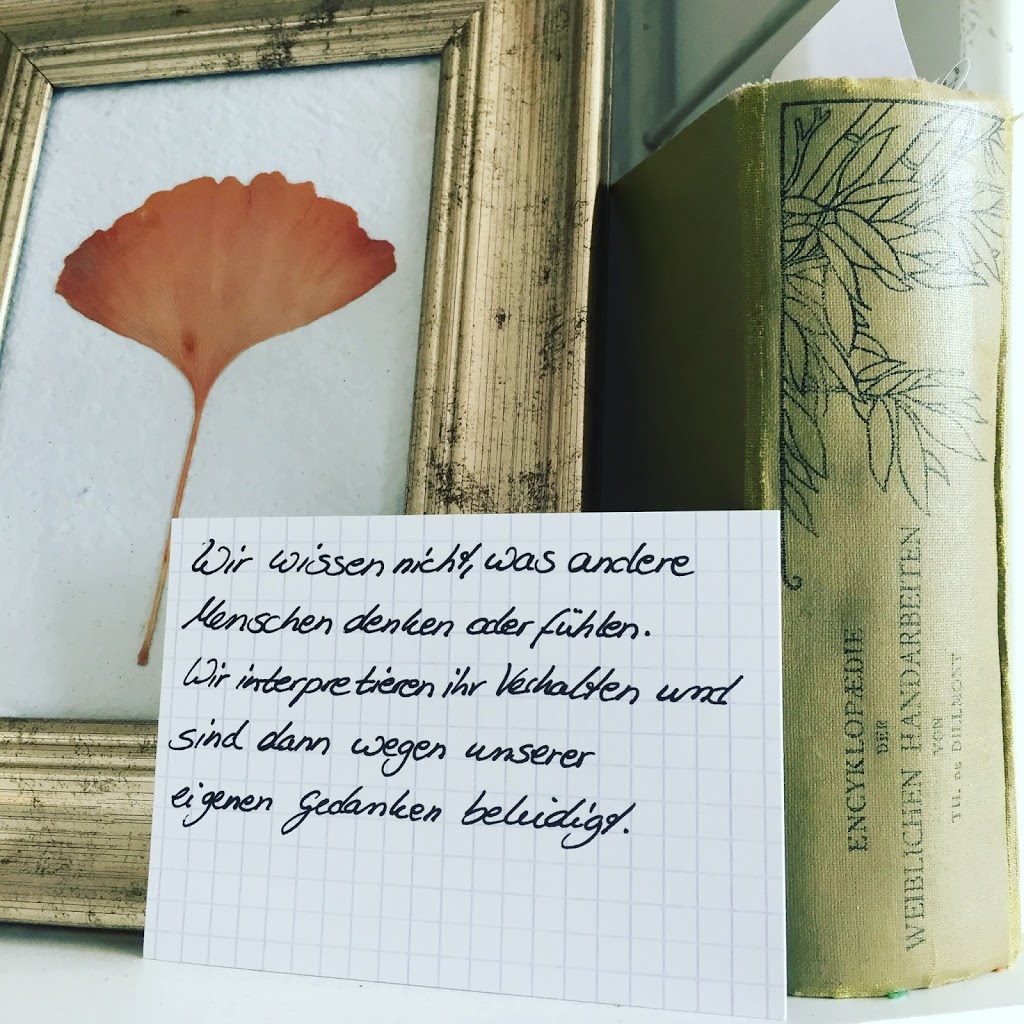 Wir wissen nicht, was andere
Menschen denken oder fühlen.
Wir interpretieren ihr Verhalten und
sind dann wegen unserer
eigenen Gedanken beleidigt.
ENCYKLOPÆDIE
DER
WEIBLICHEN HANDARBEITEN
VON
TH. DE DILLMONT